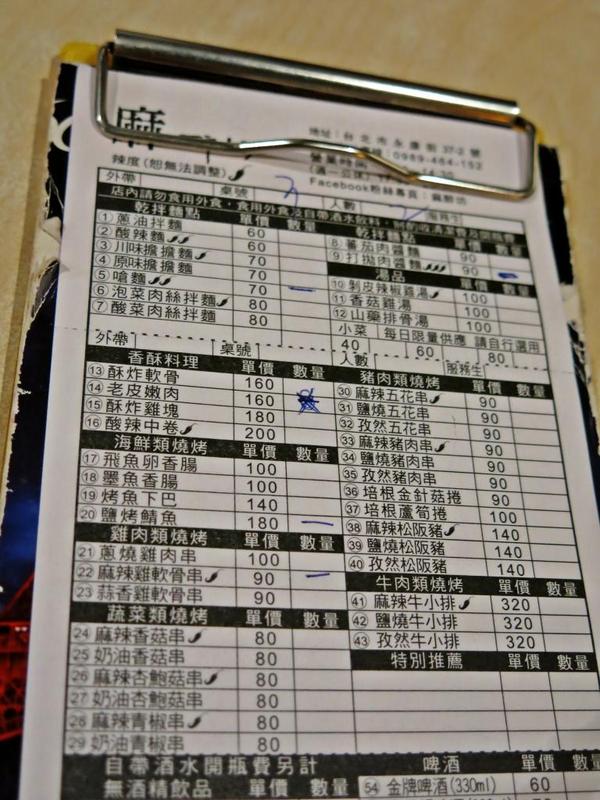 麻
地址：台北市永康街37-2號
0989-464-152
營業時間
Facebook粉絲專頁：麻醉坊
辣度(恕無法調整)
外帶 桌號 人數 服務生
店內請勿食用外食，食用外食及自帶酒水飲料，
乾拌麵點 單價 數量
① 蔥油拌麵 60
② 酸辣麵 60
③ 川味擔擔麵 70
④ 原味擔擔麵 70
⑤ 嗆麵 70
⑥ 泡菜肉絲拌麵 80
⑦ 酸菜肉絲拌麵 80
乾拌麵點 單價 數量
⑧ 蕃茄肉醬麵 90
⑨ 打拋肉醬麵 90
湯品 單價 數量
⑩ 剝皮辣椒雞湯 100
⑪ 香菇雞湯 100
⑫ 山藥排骨湯 100
小菜 每日限量供應 請自行選用
40 60 80
外帶 桌號 人數 服務生
香酥料理 單價 數量
⑬ 酥炸軟骨 160
⑭ 老皮嫩肉 160
⑮ 酥炸雞塊 180
⑯ 酸辣中卷 200
海鮮類燒烤 單價 數量
⑰ 飛魚卵香腸 100
⑱ 墨魚香腸 100
⑲ 烤魚下巴 140
⑳ 鹽烤鯖魚 180
雞肉類燒烤 單價 數量
㉑ 蔥燒雞肉串 100
㉒ 麻辣雞軟骨串 90
㉓ 蒜香雞軟骨串 90
蔬菜類燒烤 單價 數量
㉔ 麻辣香菇串 80
㉕ 奶油香菇串 80
㉖ 麻辣杏鮑菇串 80
㉗ 奶油杏鮑菇串 80
㉘ 麻辣青椒串 80
㉙ 奶油青椒串 80
豬肉類燒烤 單價 數量
㉚ 麻辣五花串 90
㉛ 鹽燒五花串 90
㉜ 孜然五花串 90
㉝ 麻辣豬肉串 90
㉞ 鹽燒豬肉串 90
㉟ 孜然豬肉串 90
㊱ 培根金針菇捲 90
㊲ 培根蘆筍捲 100
㊳ 麻辣松阪豬 140
㊴ 鹽燒松阪豬 140
㊵ 孜然松阪豬 140
牛肉類燒烤 單價 數量
㊶ 麻辣牛小排 320
㊷ 鹽燒牛小排 320
㊸ 孜然牛小排 320
特別推薦 單價 數量
自帶酒水開瓶費另計
無酒精飲品 單價 數量
啤酒 單價 數量
54 金牌啤酒(330ml) 60